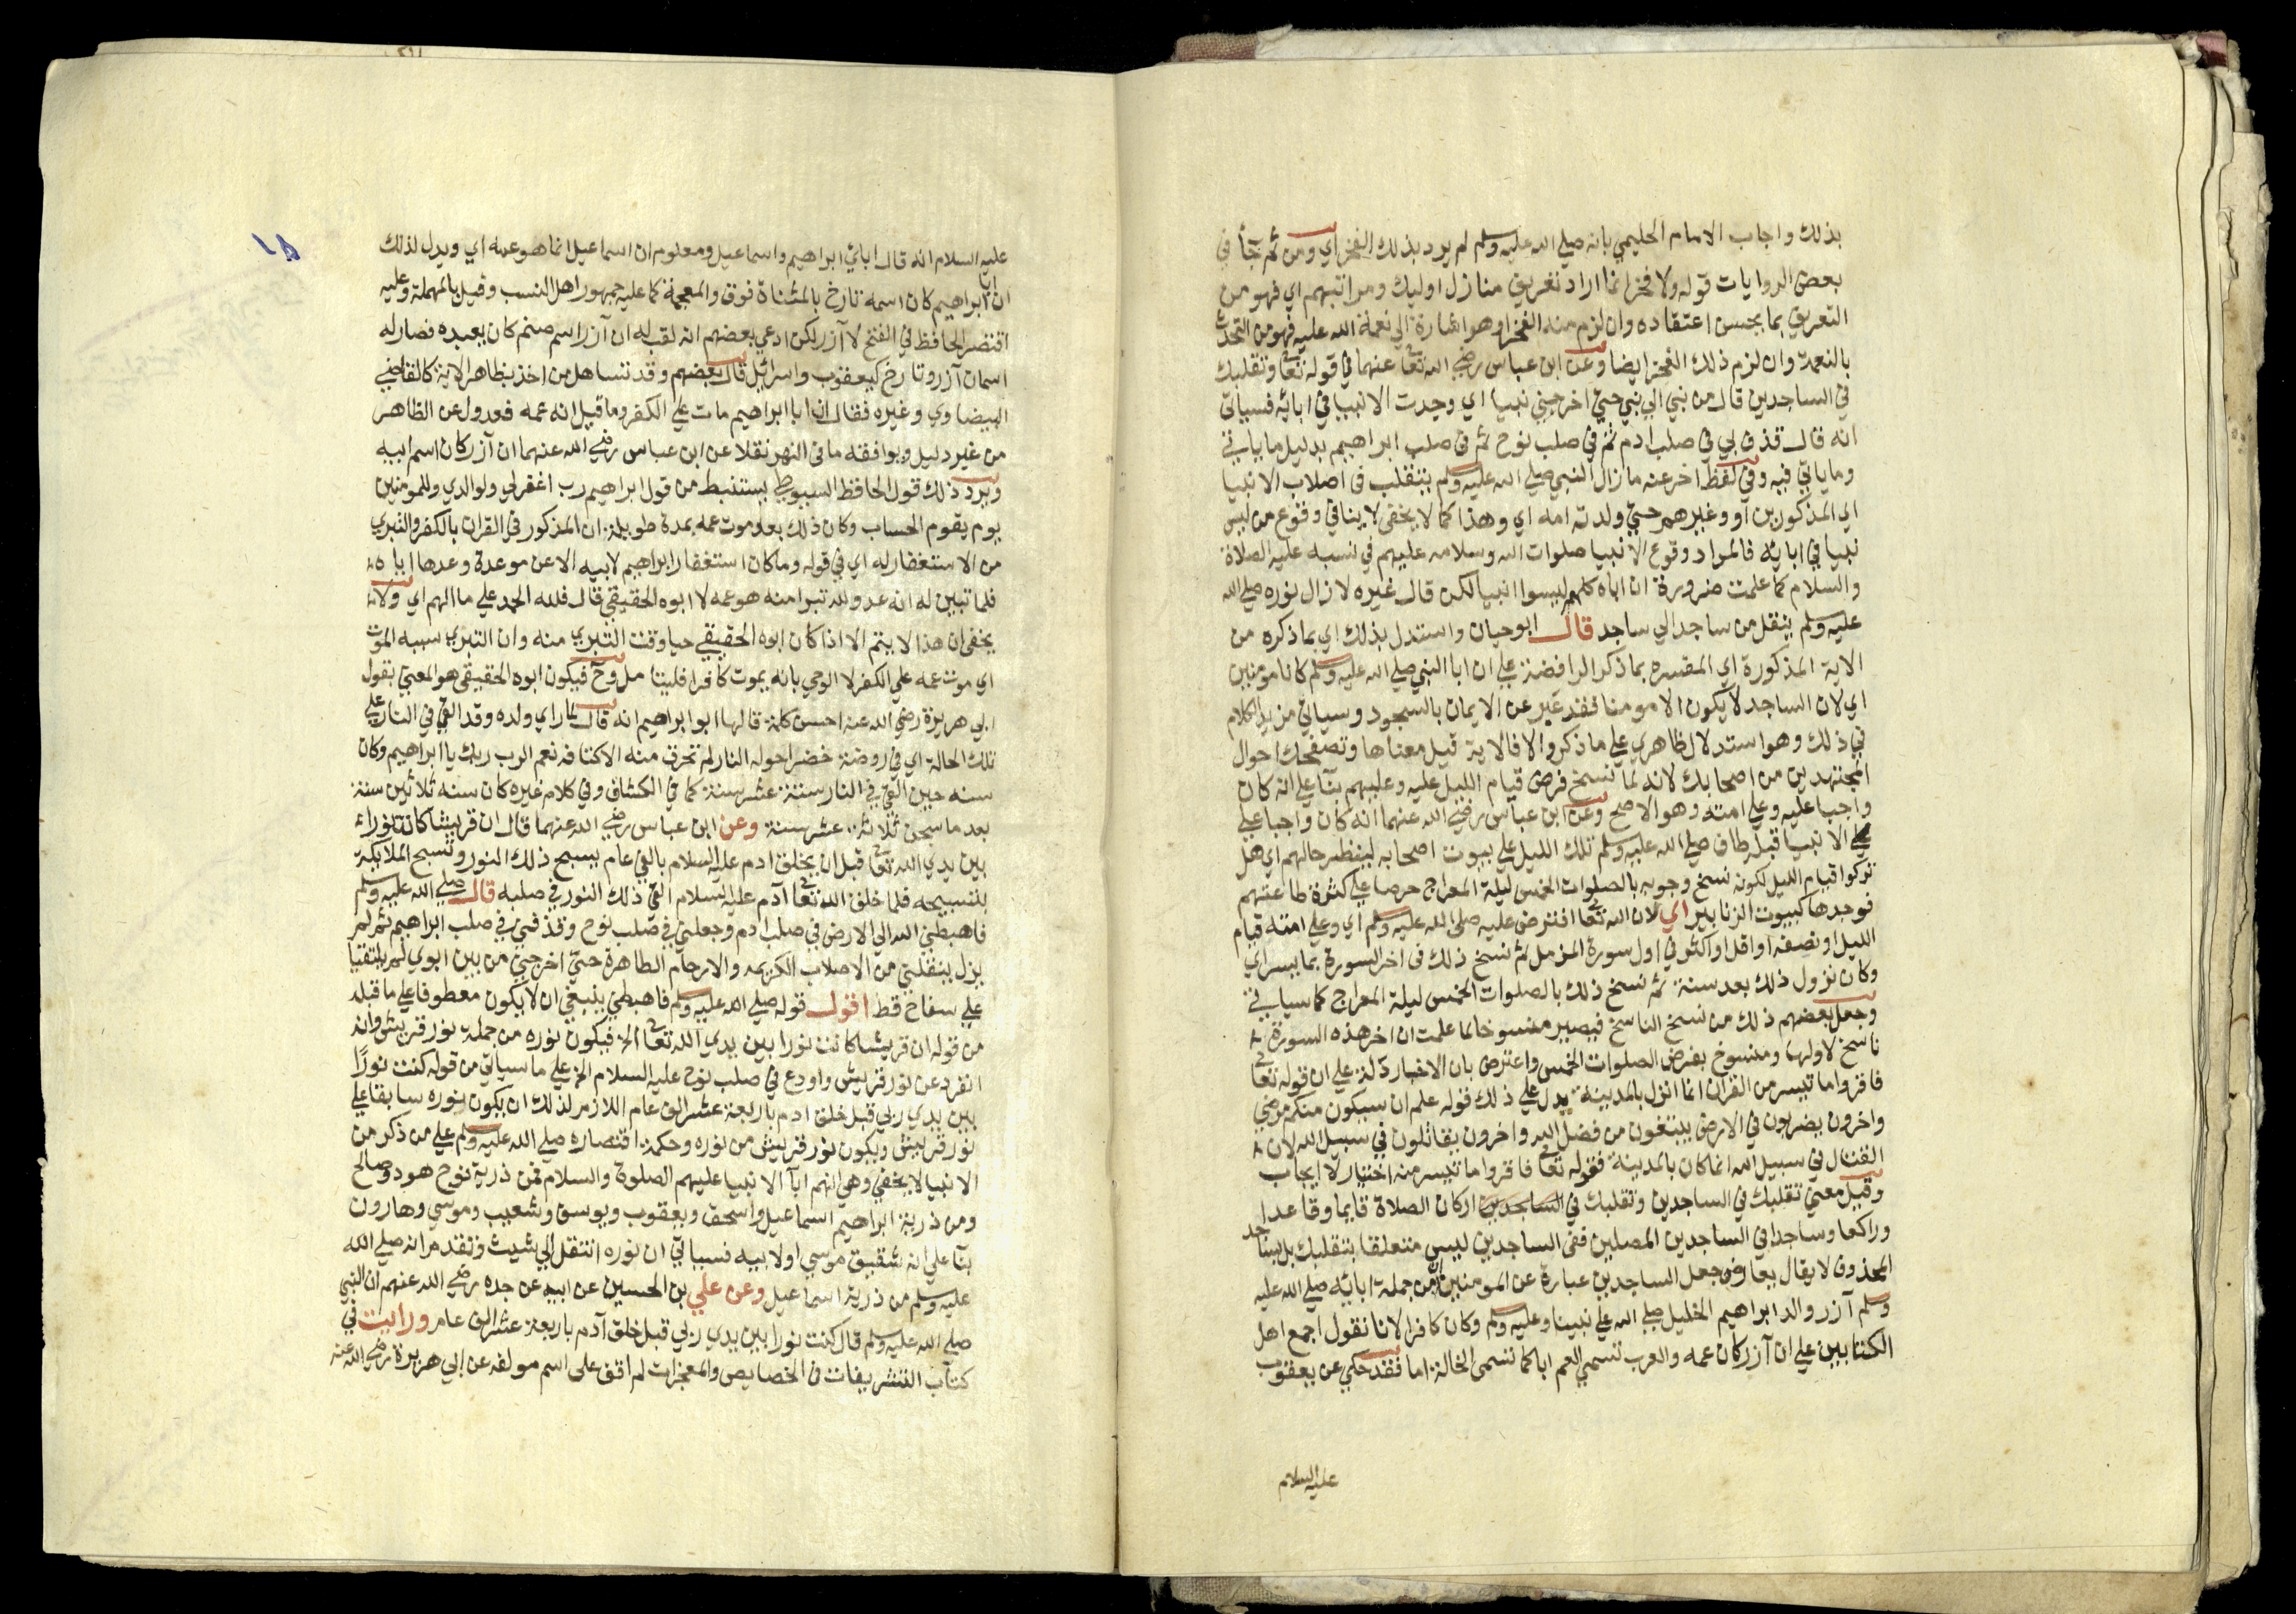 بذلك واجاب الامام الحليمي بانه صلي الله عليه وسلم لم يرد بذلك الفخر اي ومن ثم جآ في
بعض الروايات قوله ولا فخر انما اراد تعريف منازل اوليك ومراتبهم اي فهو من
التعريف بما يحسن اعتقاده وان لزم منه الفخر او هو اشارة الي نعمة الله عليه فهو من التحدث
بالنعمة وان لزم ذلك الفخر ايضا وعن ابن عباس رضي الله تعا عنهما في قوله تعا وتقلبك
في الساجدين قال من نبي الي نبي حتي اخرجني نبيا اي وجدت الانبيا في ابائه فسياتي
انه قال قذف بي في صلب ادم ثم في صلب نوح ثم في صلب ابراهيم بدليل ما ياتي
وما ياتي فيه وفي لفظ اخر عنه مازال النبي صلي الله عليه وسلم يتقلب في اصلاب الانبيا
اي المذكورين او وغيرهم حتي ولدته امه اي وهذا كما لا يخفي لا ينافي وقوع من ليس
نبيا في ابائه فالمراد وقوع الانبيا صلوات الله وسلامه عليهم في نسبه عليه الصلاة
والسلام كما علمت ضرورة ان اباه كلهم ليسوا انبيا لكن قال غيره لازال نوره صلي الله
عليه وسلم ينقل من ساجد الي ساجد قال ابو حيان واستدل بذلك اي بما ذكره من
الاية المذكورة اي المفسره بما ذكر الرافضة علي ان ابا النبي صلي الله عليه وسلم كانا مومنين
اي لان الساجد لا يكون الا مومنا فقد عبر عن الايمان بالسجود وسياتي مزيد الكلام
في ذلك وهو استدلال ظاهري علي ما ذكر والا فالاية قيل معناها وتصفحك احوال
المجتهدين من اصحابك لانه لما نسخ فرض قيام الليل عليه وعليهم بنآ علي انه كان
واجبا عليه وعلي امته وهو الاصح وعن ابن عباس رضي الله عنهما انه كان واجبا علي
الانبيا قبله طاف صلي الله عليه وسلم تلك الليل علي بيوت اصحابه لينظر حالهم اي هل
تركوا قيام الليل لكونه نسخ وجوبه بالصلوات الخمس ليلة المعراج حرصا علي كثرة طاعتهم
فوجدها كبيوت الزنابير اي لان الله تعا افترض عليه صلي الله عليه وسلم اي وعلي امته قيام
الليل او نصفه او اقل او اكثر في اول سورة المزمل ثم نسخ ذلك في اخر السورة بما ييسر اي
وكان نزول ذلك بعد سنة ثم نسخ ذلك بالصلوات الخمس ليلة المعراج كما سياتي
وجعل بعضهم ذلك من نسخ الناسخ فيصير منسوخا لما علمت ان اخر هذه السورة
ناسخ لاولها ومنسوخ بفرض الصلوات الخمس واعترض بان الاخبار دالة علي ان قوله تعا
فاقروا ما تيسر من القرآن انما انزل بالمدينة يدل علي ذلك قوله علم ان سيكون منكم مرضي
واخرون يضربون في الارض يبتغون من فضل الله واخرون يقاتلون في سبيل الله لان
القتال في سبيل الله انما كان بالمدينة فقوله تعا فاقروا ما تيسر منه اختيار لا ايجاب
وقيل معني تقلبك في الساجدين وتقلبك في الساجدين اركان الصلاة قايما وقاعدا
وراكعا وساجدا في الساجدين المصلين ففي الساجدين ليس متعلقا بتقلبك بل بساجد
المحذوف لا يقال يعارض جعل الساجدين عبارة عن المومنين ان من جملة ابائه صلي الله عليه
وسلم آزر والد ابراهيم الخليل صلي الله علي نبينا وعليه وسلم وكان كافرا لانا نقول اجمع اهل
الكتابين علي ان آزر كان عمه والعرب تسمي العم ابا كما تسمي الخالة اما فقد حكي عن يعقوب
عليه السلام
١٥
عليه السلام انه قال ابائي ابراهيم واسماعيل ومعلوم ان اسماعيل انما هو عمه اي ويدل لذلك
ان ابا ابراهيم كان اسمه تارخ بالمثناة فوق والمعجمة كما عليه جمهور اهل النسب وقيل بالمهملة وعليه
اقتصر الحافظ في الفتح لا آزر لكن ادعي بعضهم انه لقب له ان آزر اسم صنم كان يعبده فصار له
اسمان آزر وتارخ كيعقوب واسرائل قال بعضهم وقد تساهل من اخذ بظاهر الاية كالقاضي
البيضاوي وغيره فقال ان ابا ابراهيم مات علي الكفر وما قيل انه عمه فعدول عن الظاهر
من غير دليل ويوافقه ما في النهر نقلا عن ابن عباس رضي الله عنهما ان آزر كان اسم ابيه
ويرد ذلك قول الحافظ السيوطي يستنبط من قول ابراهيم رب اغفر لي ولوالدي وللمومنين
يوم يقوم الحساب وكان ذلك بعد موت عمه بمدة طويلة ان المذكور في القران بالكفر والتبري
من الاستغفار له اي في قوله وما كان استغفار ابراهيم لابيه الا عن موعدة وعدها اياه
فلما تبين له انه عدو لله تبرا منه هو عمه لا ابوه الحقيقي قال فلله الحمد علي ما الهم اي ولا
يخفي ان هذا لا يتم الا اذا كان ابوه الحقيقي حيا وقت التبري منه وان التبري سببه الموت
اي موت عمه علي الكفر لا الوحي بانه يموت كافرا فليتامل وح فيكون ابوه الحقيقي هو المعني بقول
ابي هريرة رضي الله عنه احسن كلمة قالها ابو ابراهيم انه قال لما راي ولده وقد القي في النار علي
تلك الحالة اي في روضة خضرا حوله النار لم تحرق منه الا كتافه نعم الرب ربك يا ابراهيم وكان
سنه حين القي في النار ستة عشر سنة كما في الكشاف وفي كلام غيره كان سنه ثلاثين سنة
بعد ما سجن ثلاثة عشر سنة وعن ابن عباس رضي الله عنهما قال ان قريشا كانت نورا
بين يدي الله تعا قبل ان يخلق ادم عليه السلام بالفي عام يسبح ذلك النور وتسبح الملايكة
بتسبيحه فلما خلق الله تعا آدم عليه السلام القي ذلك النور في صلبه قال صلي الله عليه وسلم
فاهبطني الله الي الارض في صلب ادم وجعلني في صلب نوح وقذف بي في صلب ابراهيم ثم لم
يزل ينقلني من الاصلاب الكريمه والارحام الطاهرة حتي اخرجني من بين ابوي لم يلتقيا
علي سفاح قط اقول قوله صلي الله عليه وسلم فاهبطني ينبغي ان لا يكون معطوفا علي ما قبله
من قوله ان قريشا كانت نورا بين يدي الله تعا الخ فيكون نوره من جملة نور قريش وانه
انفرد عن نور قريش واودع في صلب نوح عليه السلام الخ علي ما سياتي من قوله كنت نورًا
بين يدي ربي قبل خلق ادم باربعة عشر الف عام اللازم لذلك ان يكون نوره سابقا علي
نور قريش ويكون نور قريش من نوره وحكمة اقتصاره صلي الله عليه وسلم علي من ذكر من
الانبيا لا يخفي وهي انهم ابآ الانبيا عليهم الصلوة والسلام فمن ذرية نوح هود وصالح
ومن ذرية ابراهيم اسماعيل واسحق ويعقوب ويوسف وشعيب وموسي وهارون
بنآ علي انه شقيق موسي او لابيه فسياتي ان نوره انتقل الي شيث وتقدم انه صلي الله
عليه وسلم من ذرية اسماعيل وعن علي بن الحسين عن ابيه عن جده رضي الله عنهم ان النبي
صلي الله عليه وسلم قال كنت نورا بين يدي ربي قبل خلق آدم باربعة عشر الف عام ورايت في
كتاب التشريفات في الخصايص والمعجزات لم اقف علي اسم مولفه عن ابي هريرة رضي الله عنه